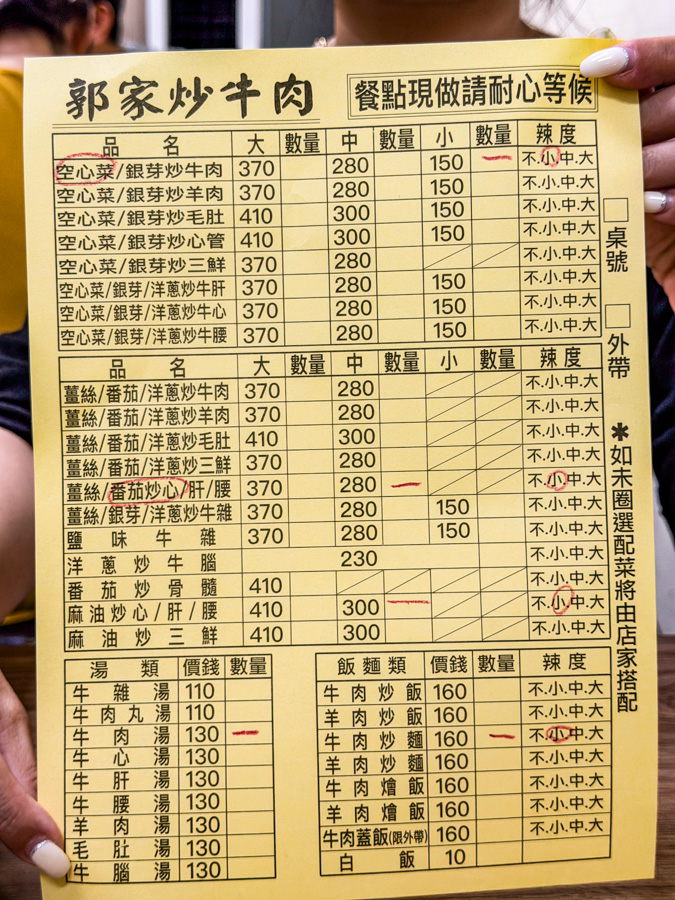 郭家炒牛肉
餐點現做請耐心等候
品名 大 數量 中 數量 小 數量 辣度
空心菜/銀芽炒牛肉 370 280 150 不.小.中.大
空心菜/銀芽炒羊肉 370 280 150 不.小.中.大
空心菜/銀芽炒毛肚 410 300 150 不.小.中.大
空心菜/銀芽炒心管 410 300 150 不.小.中.大
空心菜/銀芽炒三鮮 370 280 不.小.中.大
空心菜/銀芽/洋蔥炒牛肝 370 280 150 不.小.中.大
空心菜/銀芽/洋蔥炒牛心 370 280 150 不.小.中.大
空心菜/銀芽/洋蔥炒牛腰 370 280 150 不.小.中.大
品名 大 數量 中 數量 小 數量 辣度
薑絲/番茄/洋蔥炒牛肉 370 280 不.小.中.大
薑絲/番茄/洋蔥炒羊肉 370 280 不.小.中.大
薑絲/番茄/洋蔥炒毛肚 410 300 不.小.中.大
薑絲/番茄/洋蔥炒三鮮 370 280 不.小.中.大
薑絲/番茄炒心/肝/腰 370 280 不.小.中.大
薑絲/銀芽/洋蔥炒牛雜 370 280 150 不.小.中.大
鹽味牛雜 370 280 150 不.小.中.大
洋蔥炒牛腦 230 不.小.中.大
番茄炒骨髓 410 不.小.中.大
麻油炒心/肝/腰 410 300 不.小.中.大
麻油炒三鮮 410 300 不.小.中.大
湯類 價錢 數量
牛雜湯 110
牛肉丸湯 110
牛肉湯 130
牛心湯 130
牛肝湯 130
牛腰湯 130
羊肉湯 130
毛肚湯 130
牛腦湯 130
飯麵類 價錢 數量 辣度
牛肉炒飯 160 不.小.中.大
羊肉炒飯 160 不.小.中.大
牛肉炒麵 160 不.小.中.大
羊肉炒麵 160 不.小.中.大
牛肉燴飯 160 不.小.中.大
羊肉燴飯 160 不.小.中.大
牛肉蓋飯(限外帶) 160 不.小.中.大
白飯 10
□桌號
□外帶
✱如未圈選配菜將由店家搭配